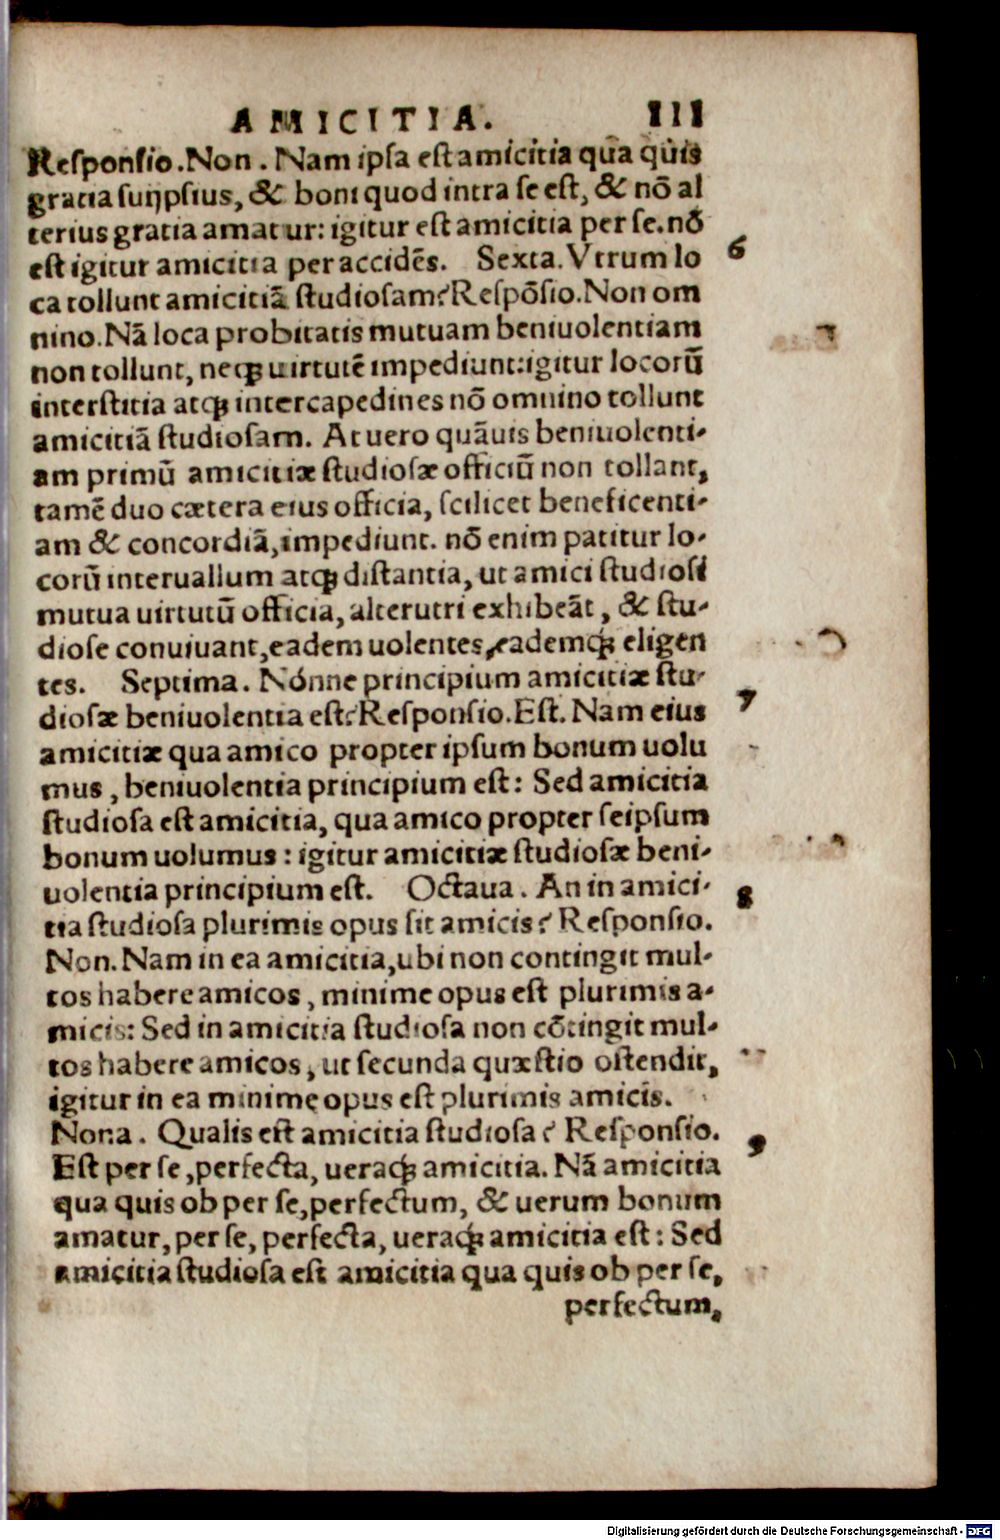 AMICITIA. III
Responsio. Non. Nam ipsa est amicitia qua quis
gratia suijpsius, & boni quod intra se est, & nō al
terius gratia amatur: igitur est amicitia per se. nō
est igitur amicitia per accidēs. Sexta. Vtrum lo 6
ca tollunt amicitiā studiosam? Respōsio. Non om
nino. Nā loca probitatis mutuam beniuolentiam
non tollunt, neq; uirtutē impediunt: igitur locorū
interstitia atq; intercapedines nō omnino tollunt
amicitiā studiosam. At uero quāuis beniuolenti-
am primū amicitiæ studiosæ officiū non tollant,
tamē duo cætera eius officia, scilicet beneficenti-
am & concordiā, impediunt. nō enim patitur lo-
corū interuallum atq; distantia, ut amici studiosi
mutua uirtutū officia, alterutri exhibeāt, & stu-
diose conuiuant, eadem uolentes, eademq; eligen
tes. Septima. Nónne principium amicitiæ stu-
diosæ beniuolentia est? Responsio. Est. Nam eius 7
amicitiæ qua amico propter ipsum bonum uolu
mus, beniuolentia principium est: Sed amicitia
studiosa est amicitia, qua amico propter seipsum
bonum uolumus: igitur amicitiæ studiosæ beni-
uolentia principium est. Octaua. An in amici- 8
tia studiosa plurimis opus sit amicis? Responsio.
Non. Nam in ea amicitia, ubi non contingit mul-
tos habere amicos, minime opus est plurimis a-
micis: Sed in amicitia studiosa non cōtingit mul-
tos habere amicos, ut secunda quæstio ostendit,
igitur in ea minime opus est plurimis amicis.
Nona. Qualis est amicitia studiosa? Responsio. 9
Est per se, perfecta, ueraq; amicitia. Nā amicitia
qua quis ob per se, perfectum, & uerum bonum
amatur, per se, perfecta, ueraq; amicitia est: Sed
amicitia studiosa est amicitia qua quis ob per se,
perfectum,
Digitalisierung gefördert durch die Deutsche Forschungsgemeinschaft - DFG